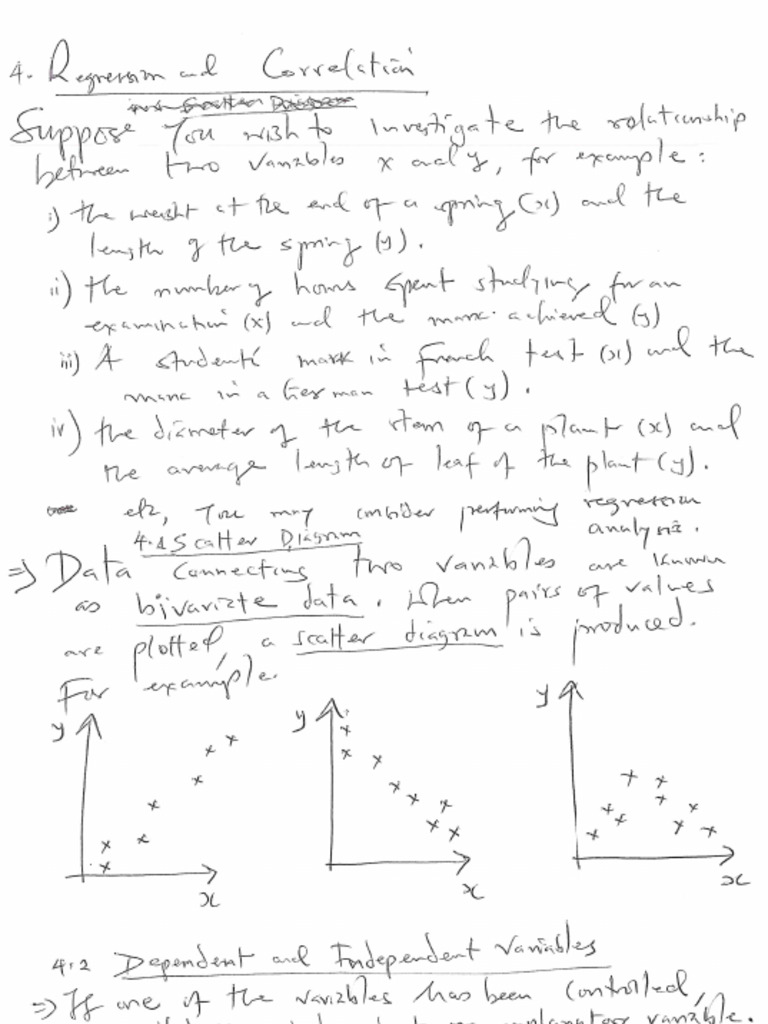 4. Regression and Correlation
Suppose You wish to investigate the relationship
between two variables x and y, for example:
i) the weight at the end of a spring (x) and the
length of the spring (y).
ii) the number of hours spent studying for an
examination (x) and the mark achieved (y)
iii) A students' mark in French test (x) and the
mark in a German test (y).
iv) the diameter of the stem of a plant (x) and
the average length of leaf of the plant (y).
etc, You may consider performing regression
analysis.
4.1 Scatter Diagram
⇒ Data connecting two variables are known
as bivariate data. When pairs of values
are plotted, a scatter diagram is produced.
For example.
y
x
y
x
y
x
4.2 Dependent and Independent Variables
⇒ If one of the variables has been controlled,
explanatory variable.